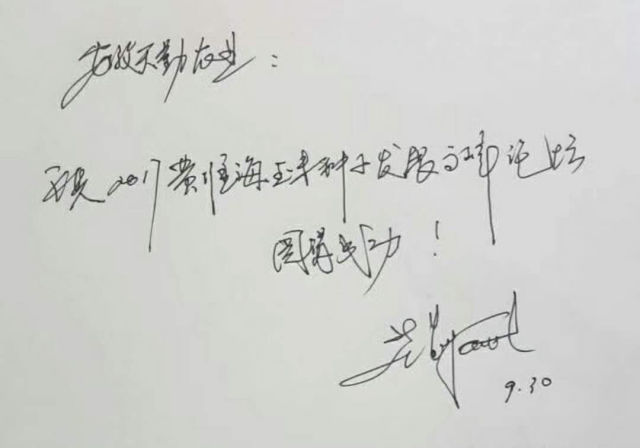 天勤农业：
预祝2017黄淮海玉米种子发展高峰论坛
圆满成功！
9.30